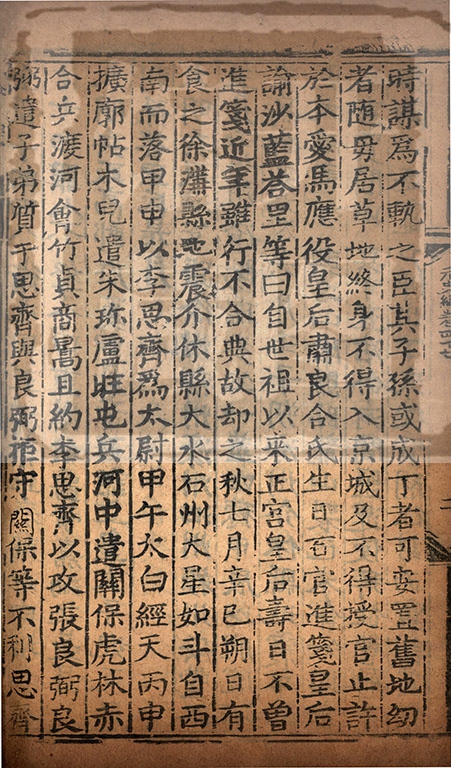 時謀爲不軌之臣其子孫或成丁者可安置舊地幼
者随母居草地終身不得入京城及不得授官止許
於本愛馬應役皇后肅良合氏生日百官進箋皇后
諭沙藍荅里等曰自世祖以来正宫皇后壽日不曾
進箋近年雖行不合典故却之秋七月辛巳朔日有
食之徐溝縣地震介休縣大水石州大星如斗自西
南而落甲申以李思齊爲太尉甲午太白經天丙申
擴廓帖木兒遣朱珎盧旺屯兵河中遣關保虎林赤
合兵渡河會竹貞商暠且約李思齊以攻張良弼良
弼遣子弟質于思齊與良弼拒守關保等不利思齊